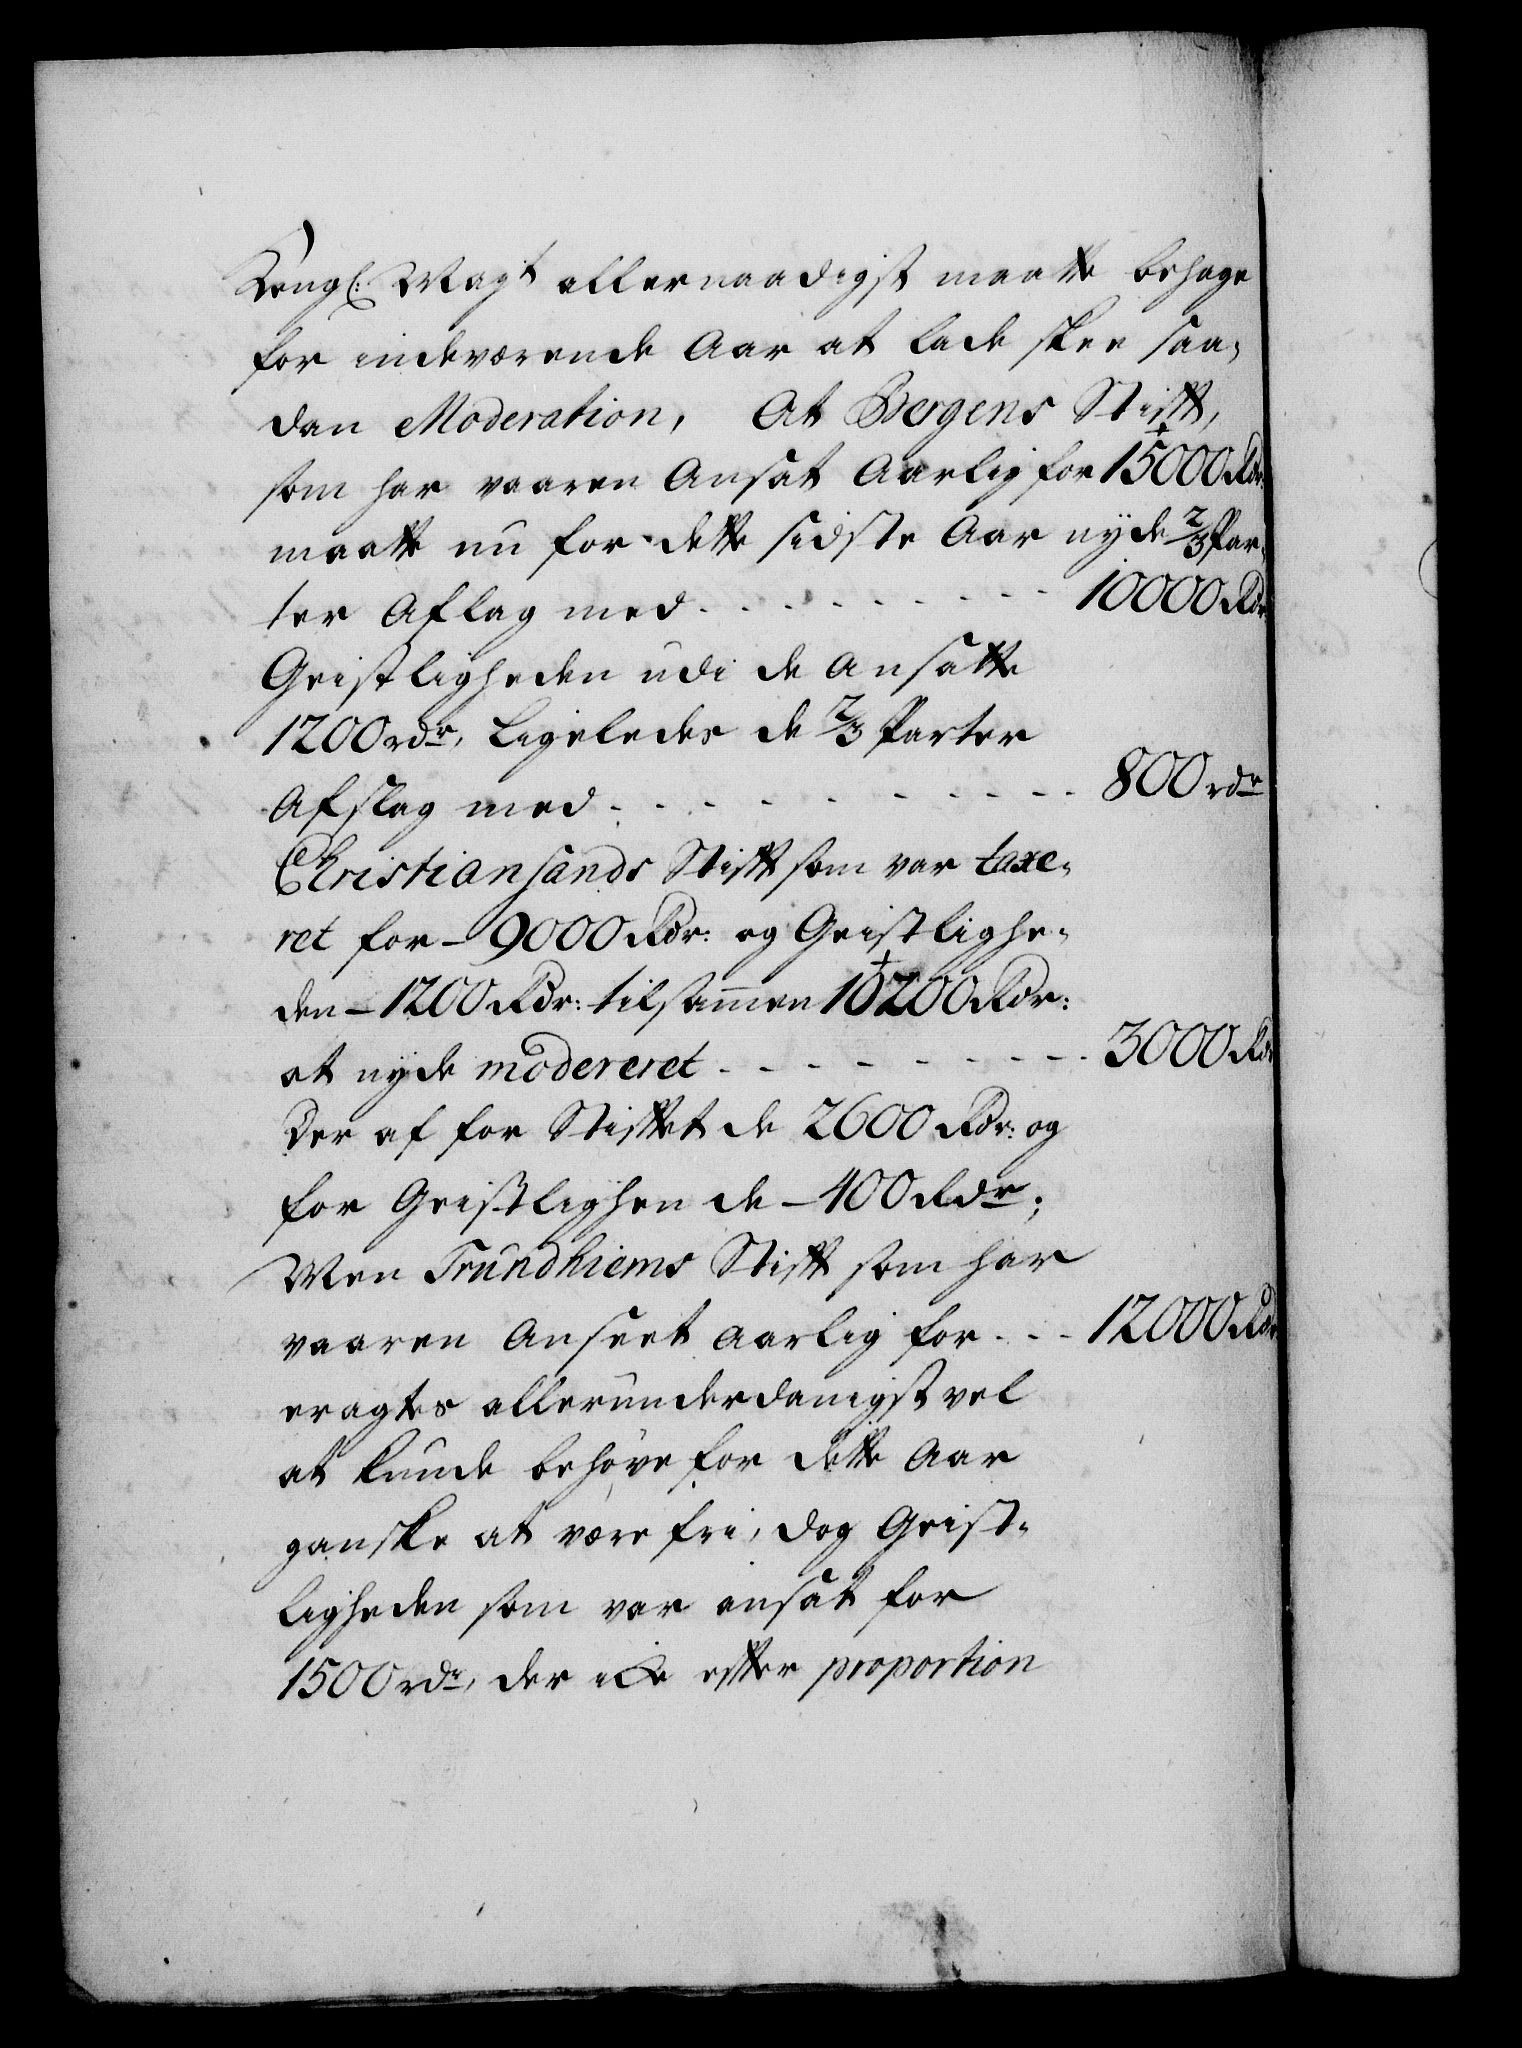 Kongl: Mayt allernaadigst maatte behage
for indeværende Aar at lade skee saa,
dan Moderation, At Bergens Stift,
som har vaaren Ansat Aarlig for 15000 Rdr:
maatte nu for dette sidste Aar nyde 2/3 Par,
ter Aflag med - - - - - - - - - 10000 Rdr
Geistligheden udi de Ansatte
1200 rdr, Ligeledes de 2/3 Parter
Afslag med - - - - - - - - - 800 rdr
Christiansands Stift som var taxe,
ret for - 9000 Rdr: og Geistlighe,
den - 1200 Rdr: tilsammen 10200 Rdr:
at nyde modereret - - - - - - - - 3000 Rdr
Der af for Stiftet de 2600 Rdr: og
for Geistlighen de - 400 Rdr;
Men Trundhiems Stift som har
vaaren Anseet Aarlig for - - - 12000 Rdr
eragtes allerunderdanigst vel
at kunde behøve for dette Aar
ganske at være fri, dog Geist,
ligheden som var ansat for
1500 rdr, der icke efter proportion